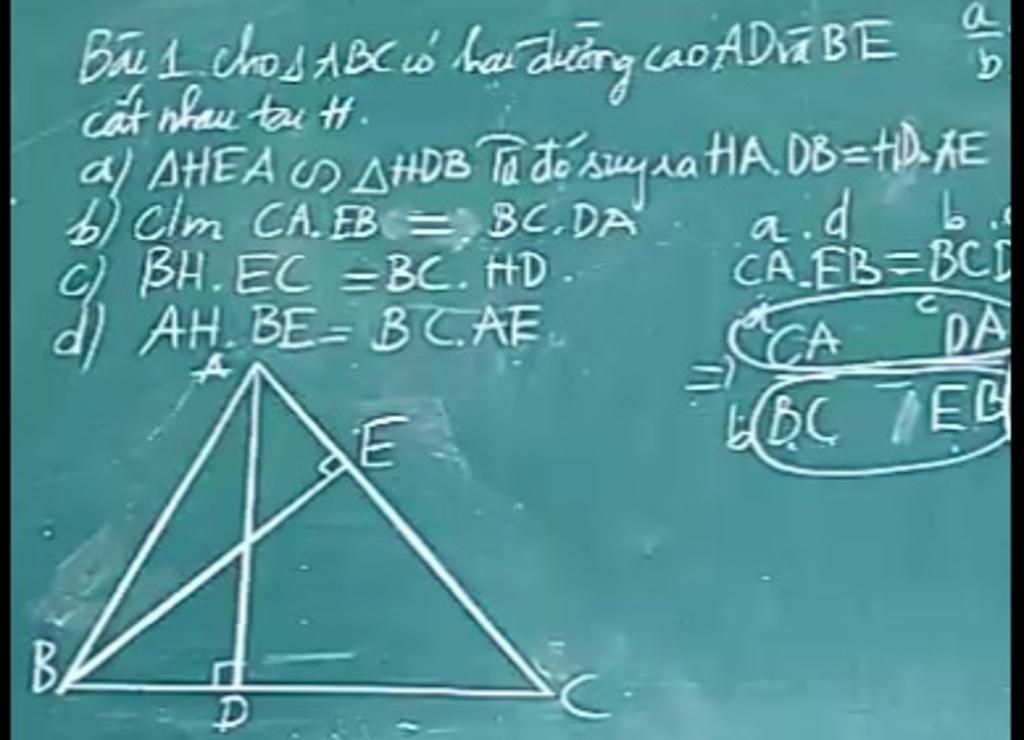 Bài 1. Cho Δ ABC có hai đường cao AD và BE
cắt nhau tại H.
a) ΔHEA ∽ ΔHDB Từ đó suy ra HA.DB=HD.AE
b) C/m CA.EB = BC.DA
c) BH.EC = BC.HD.
d) AH.BE= BC.AE
a
b
a.d b.c
CA.EB=BC.D
a CA c DA
=>
b BC EB
A
E
B
D
C